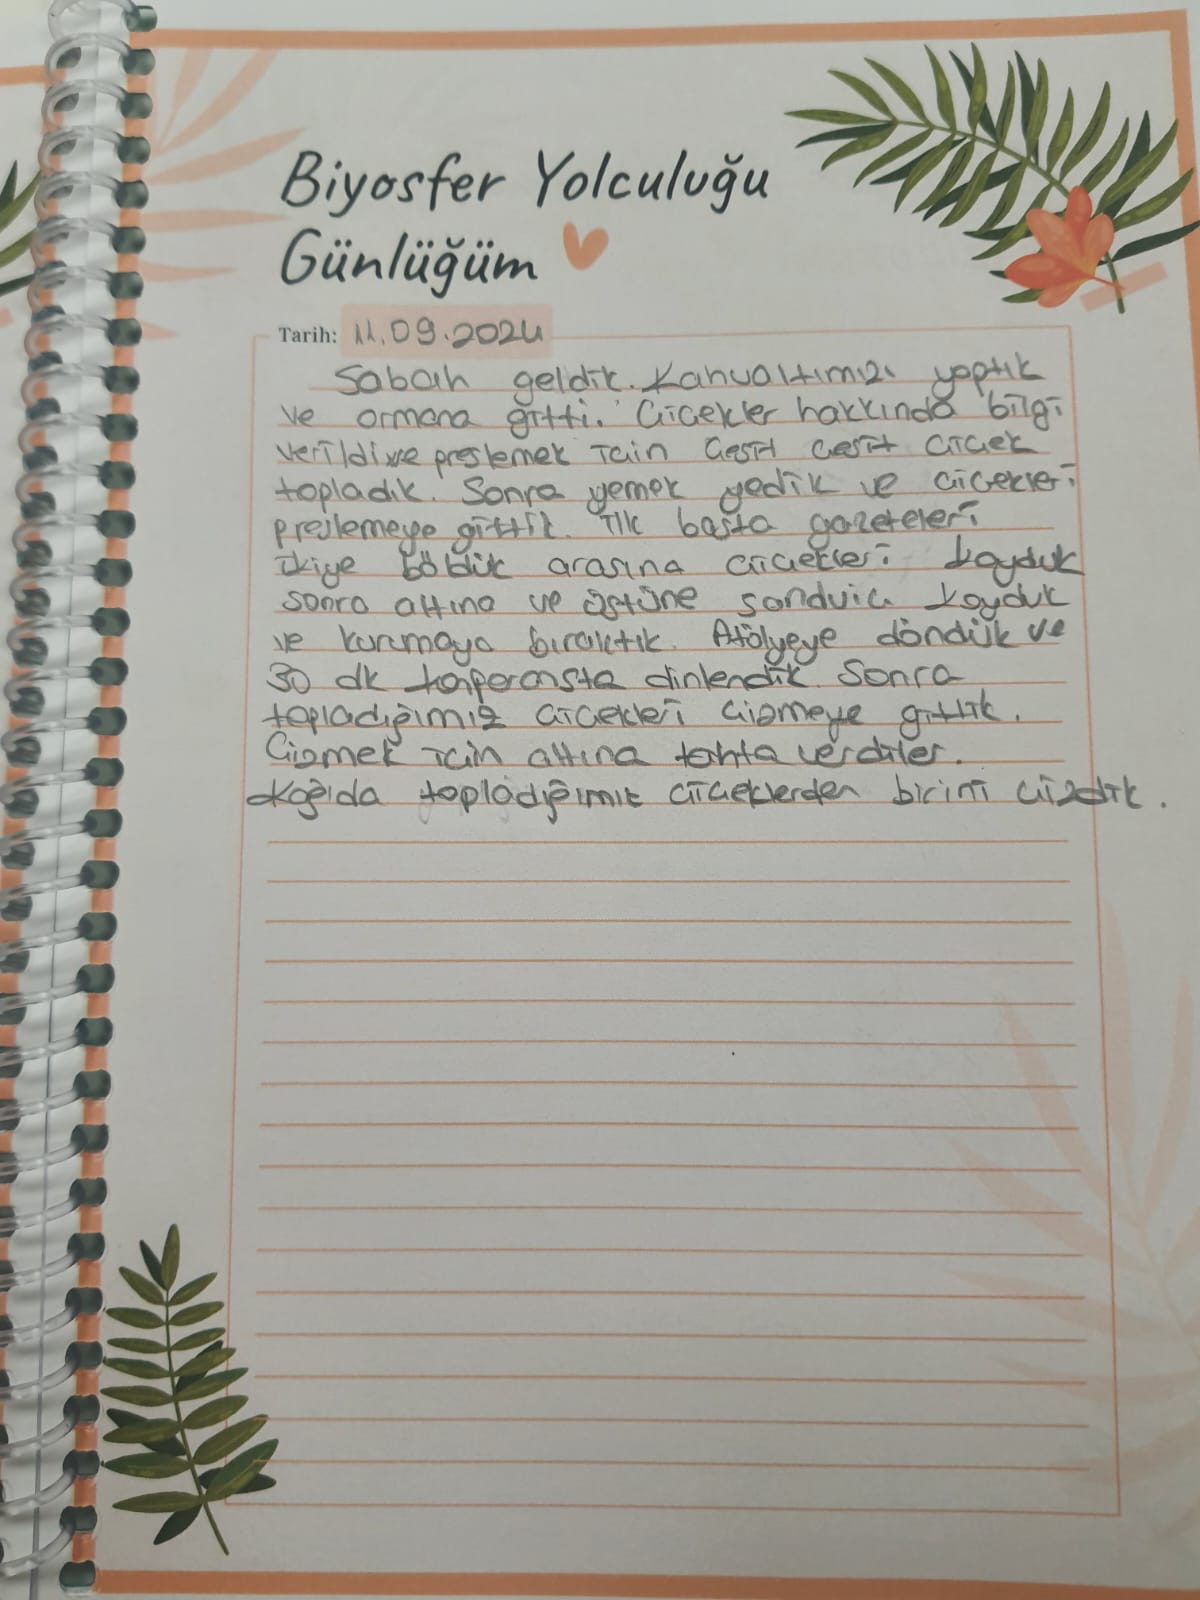 Biyosfer Yolculuğu
Günlüğüm
Tarih: 11.09.2024
Sabah geldik. Kahvaltımızı yaptık
ve ormana gitti. Çiçekler hakkında bilgi
verildi ve preslemek için çeşit çeşit çiçek
topladık. Sonra yemek yedik ve çiçekleri
preslemeye gittik. İlk başta gazeteleri
ikiye böldük arasına çiçekleri koyduk
sonra altına ve üstüne sanduiç koyduk
ve kurumaya bıraktık. Atölyeye döndük ve
30 dk dinlendik. Sonra
topladığımız çiçekleri çizmeye gittik.
Çizmek için altına tahta verdiler.
Kağıda topladığımız çiçeklerden birini çizdik.